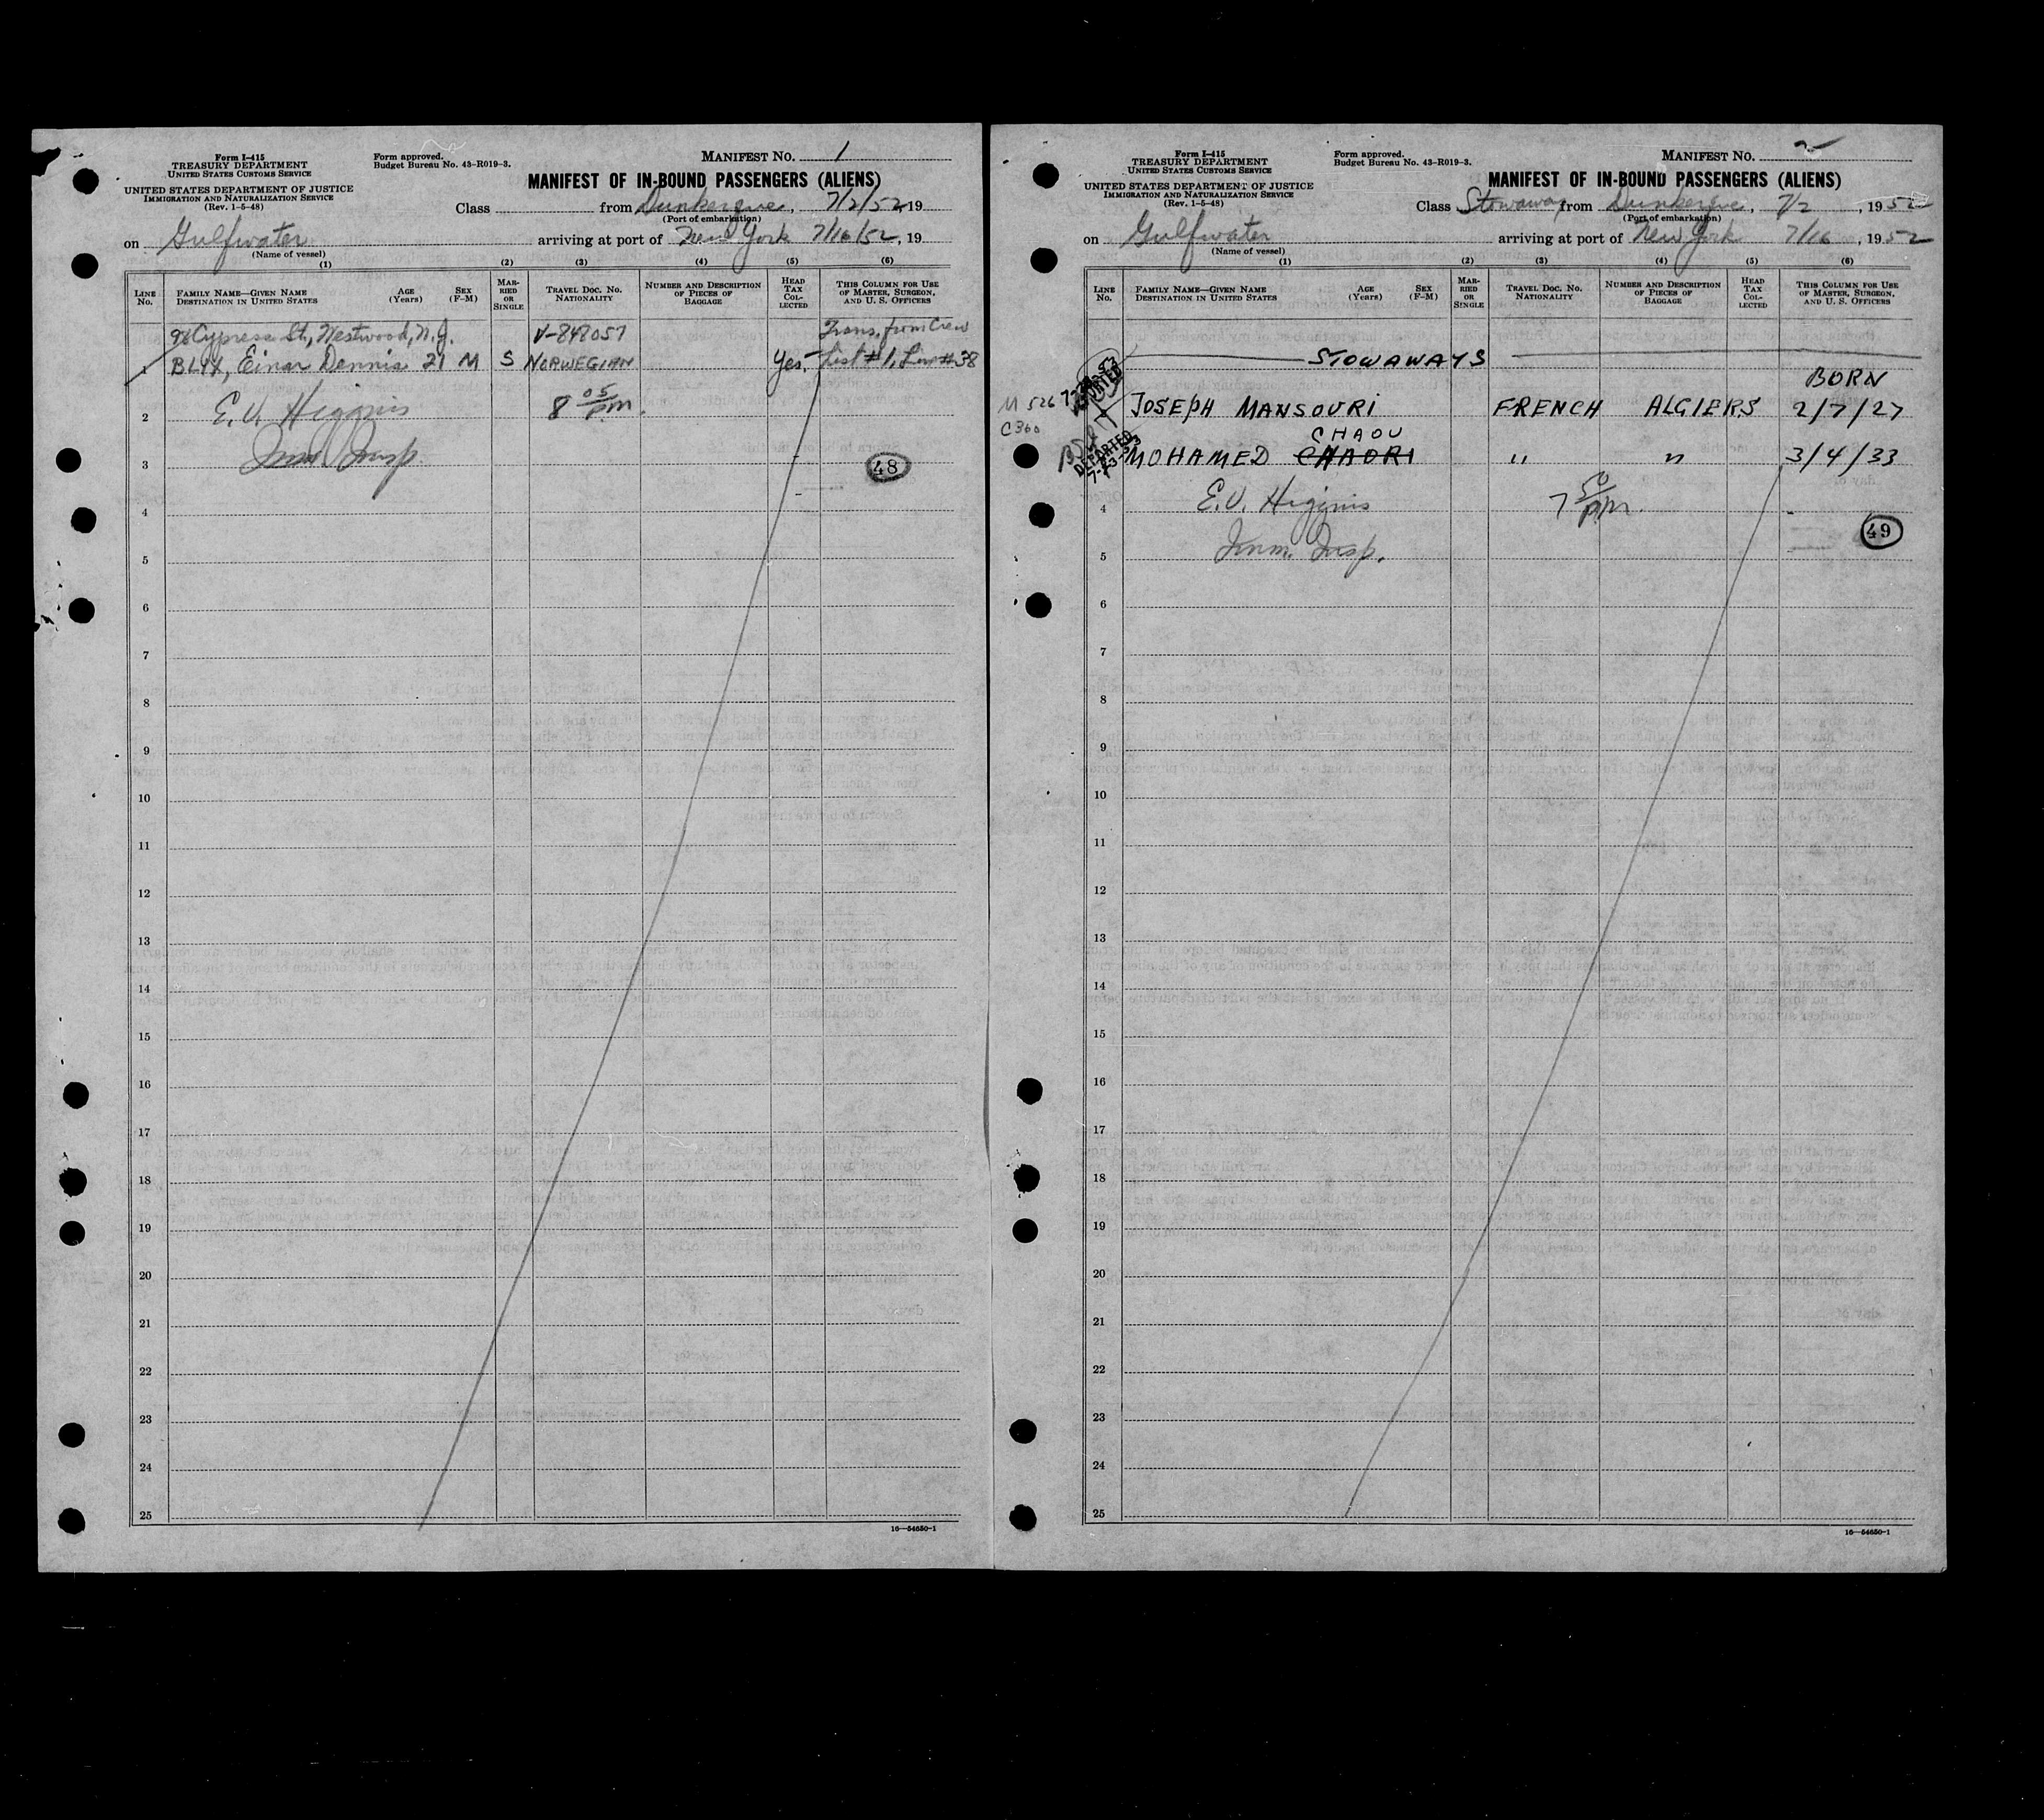 Form I-415
TREASURY DEPARTMENT
UNITED STATES CUSTOMS SERVICE
UNITED STATES DEPARTMENT OF JUSTICE
IMMIGRATION AND NATURALIZATION SERVICE
(Rev. 1-5-48)
Form approved.
Budget Bureau No. 43-R019-3.
MANIFEST NO. 1
MANIFEST OF IN-BOUND PASSENGERS (ALIENS)
Class from Dunkerque, 7/2/52, 19
(Port of embarkation)
on Gulfwater arriving at port of New York 7/16/52, 19
(Name of vessel)
(1) (2) (3) (4) (5) (6)
LINE No.
FAMILY NAME—GIVEN NAME
DESTINATION IN UNITED STATES
AGE (Years)
SEX (F-M)
MARRIED OR SINGLE
TRAVEL DOC. NO.
NATIONALITY
NUMBER AND DESCRIPTION OF PIECES OF BAGGAGE
HEAD TAX COLLECTED
THIS COLUMN FOR USE OF MASTER, SURGEON, AND U. S. OFFICERS
Cypress St., Westwood, N.J. V-848057 Trans. from Crew
1 BLYX, Einar Dennis 21 M S NORWEGIAN Yes. List #1, Line #38
2 E.V. Higgins 8 05 pm.
3 Imm. Insp. 48
4
5
6
7
8
9
10
11
12
13
14
15
16
17
18
19
20
21
22
23
24
25
16—54650-1
Form I-415
TREASURY DEPARTMENT
UNITED STATES CUSTOMS SERVICE
UNITED STATES DEPARTMENT OF JUSTICE
IMMIGRATION AND NATURALIZATION SERVICE
(Rev. 1-5-48)
Form approved.
Budget Bureau No. 43-R019-3.
MANIFEST NO. 2
MANIFEST OF IN-BOUND PASSENGERS (ALIENS)
Class Stowaway from Dunkerque, 7/2, 1952
(Port of embarkation)
on Gulfwater arriving at port of New York 7/16, 1952
(Name of vessel)
(1) (2) (3) (4) (5) (6)
LINE No.
FAMILY NAME—GIVEN NAME
DESTINATION IN UNITED STATES
AGE (Years)
SEX (F-M)
MARRIED OR SINGLE
TRAVEL DOC. NO.
NATIONALITY
NUMBER AND DESCRIPTION OF PIECES OF BAGGAGE
HEAD TAX COLLECTED
THIS COLUMN FOR USE OF MASTER, SURGEON, AND U. S. OFFICERS
STOWAWAYS
BORN
M 526
C 360
JOSEPH MANSOURI FRENCH ALGIERS 2/7/27
CHAOU
DEPARTED
MOHAMED CHAORI " " 3/4/33
4 E.V. Higgins 7 50 pm.
5 Imm. Insp. 49
6
7
8
9
10
11
12
13
14
15
16
17
18
19
20
21
22
23
24
25
16—54650-1